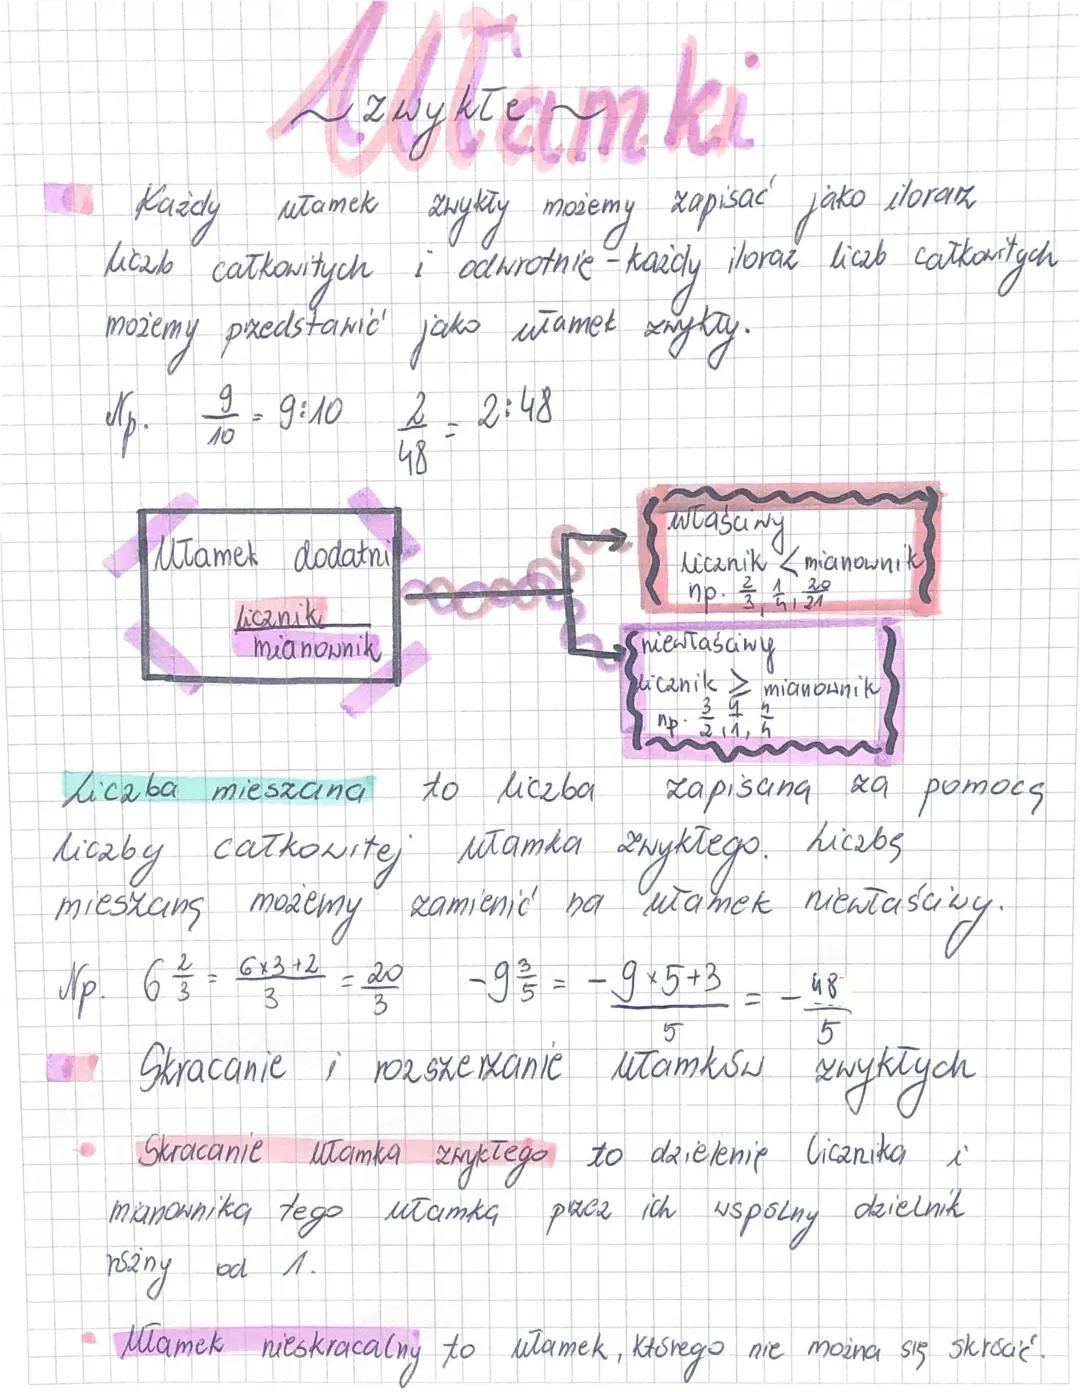 Ułamki
~zwykłe~
Każdy ułamek zwykły możemy zapisać jako iloraz
liczb całkowitych i odwrotnie - każdy iloraz liczb całkowitych
możemy przedstawić jako ułamek zwykły.
Np. 9/10 = 9:10 2/48 = 2:48
Ułamek dodatni
licznik
mianownik
właściwy
licznik < mianownik
np. 2/3, 1/4, 20/21
niewłaściwy
licznik ⩾ mianownik
np. 3/2, 9/1, 4/4
Liczba mieszana to liczba zapisana za pomocą
liczby całkowitej ułamka zwykłego. Liczbę
mieszaną możemy zamienić na ułamek niewłaściwy.
Np. 6 2/3 = 6×3+2/3 = 20/3 -9 3/5 = - 9×5+3/5 = - 48/5
Skracanie i rozszerzanie ułamków zwykłych
Skracanie ułamka zwykłego to dzielenie licznika i
mianownika tego ułamka przez ich wspólny dzielnik
różny od 1.
Ułamek nieskracalny to ułamek, którego nie można się skrócić.